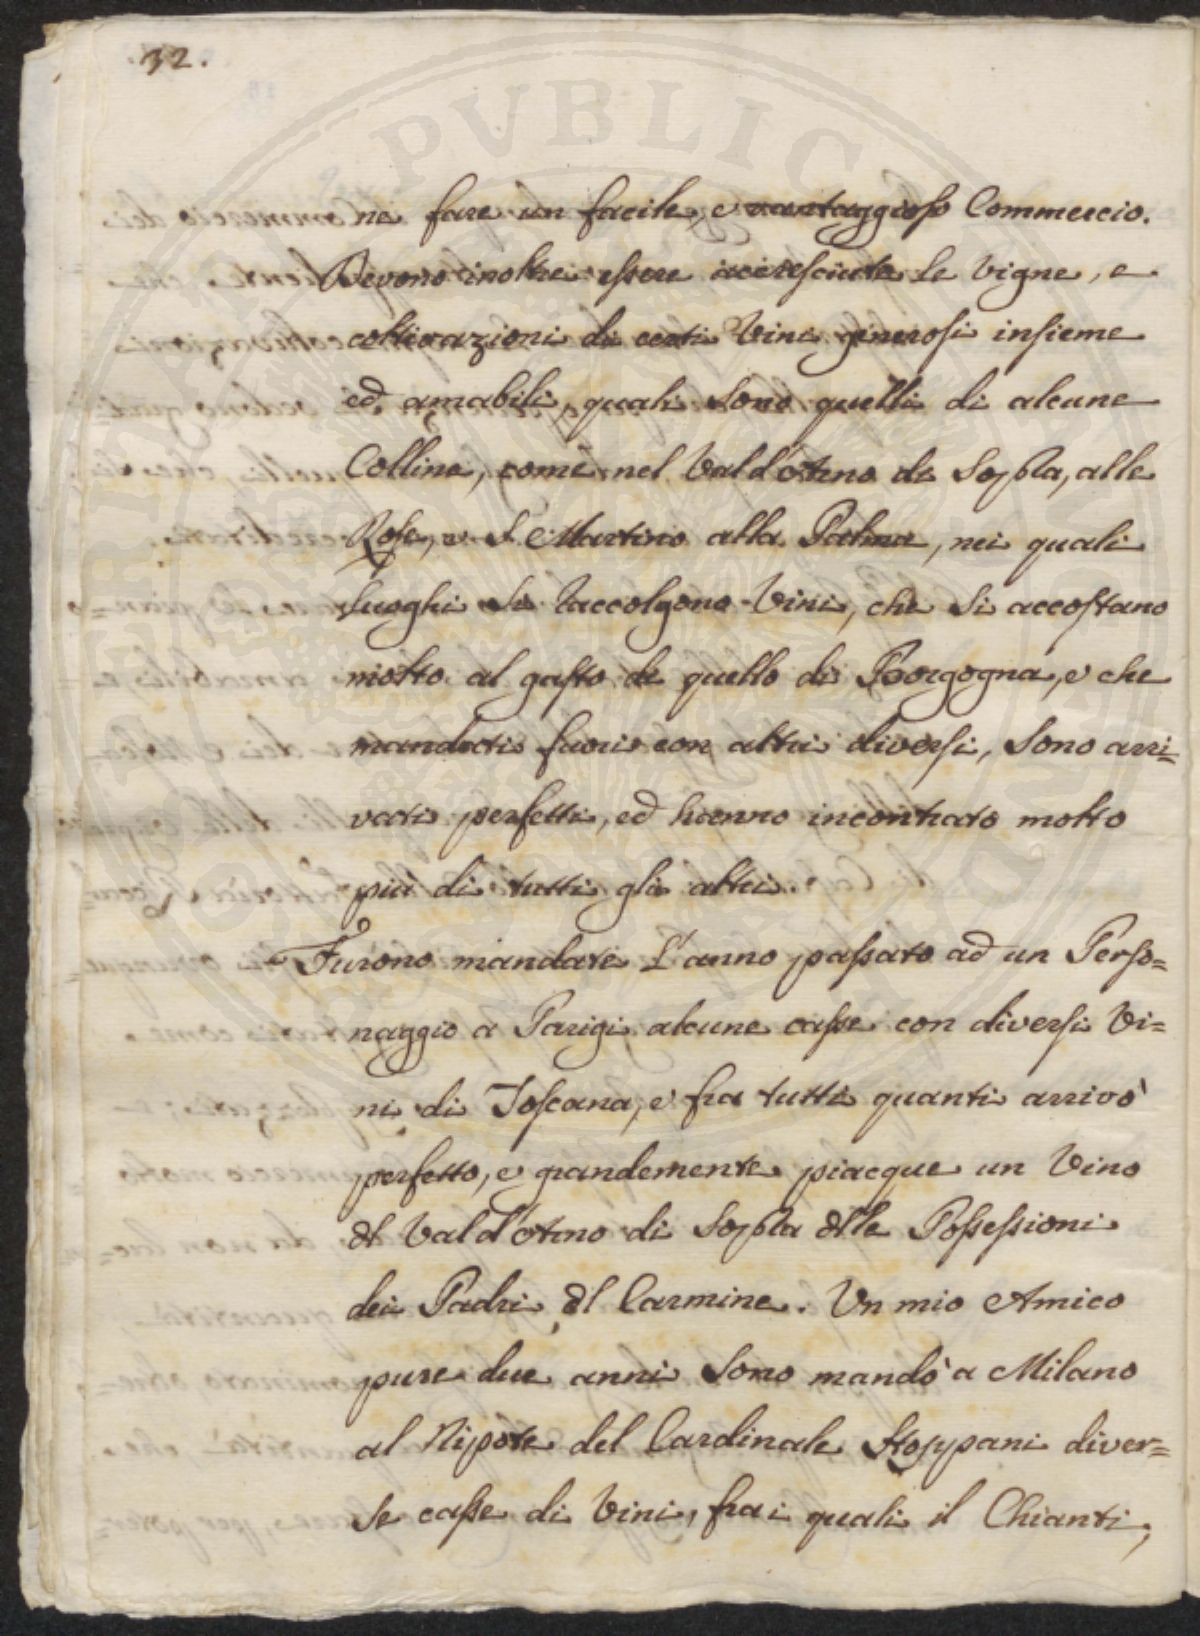 32.
ne fare un facile, e vantaggioso Commercio.
Devono inoltre essere accresciute le Vigne, e
coltivazioni di certi Vini generosi insieme
ed amabili, quali sono quelli di alcune
Colline, come nel Vald'Arno di Sopra, alle
Rose, e S. Martino alla Palma, nei quali
Luoghi si raccolgono Vini, che si accostano
molto al gusto di quello di Borgogna, e che
mandati fuori con altri diversi, sono arri=
vati perfetti, ed hanno incontrato molto
più di tutti gli altri.
Furono mandate l'anno passato ad un Perso=
naggio a Parigi alcune casse con diversi Vi=
ni di Toscana, e fra tutti quanti arrivò
perfetto, e grandemente piacque un Vino
dl Vald'Arno di Sopra dlle Possessioni
dei Padri dl Carmine. Un mio Amico
pure due anni sono mandò a Milano
al Nipote del Cardinale Stoppani diver=
se casse di Vini, fra i quali il Chianti,